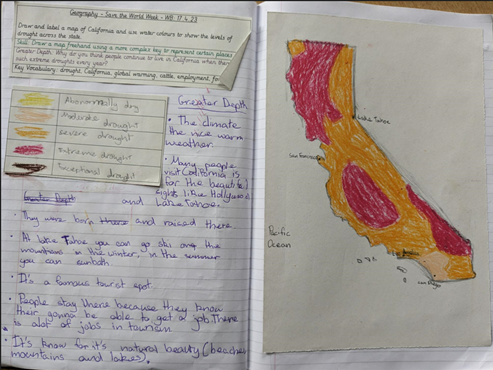 Geography - Save the World Week - WB 17.4.23
Draw and label a map of California and use water colours to show the levels of
drought across the state.
Skill: Draw a map freehand using a more complex key to represent certain places
Greater Depth: Why do you think people continue to live in California when there
such extreme droughts every year?
Key Vocabulary: drought, California, global warming, cattle, employment, fo
Abnormally dry
Moderate drought
Severe drought
Extreme drought
Exceptional drought
Greater Depth
• The climate
the nice warm
weather.
• Many people
visit California is
for the beautiful
sights like Hollywood
and Lake Tahoe.
Greater Depth
• They were born and raised there.
• At lake Tahoe you can go ski the
mountains in the winter, in the summer
you can sunbath
• It's a famous tourist spot.
• People stay there because they know
their gonna be able to get a job. There
is alot of jobs in tourism
• It's know for it's natural beauty (beaches
mountains and lakes).
Lake Tahoe
San Francisco
Pacific
Ocean
Los Angeles
San Diego